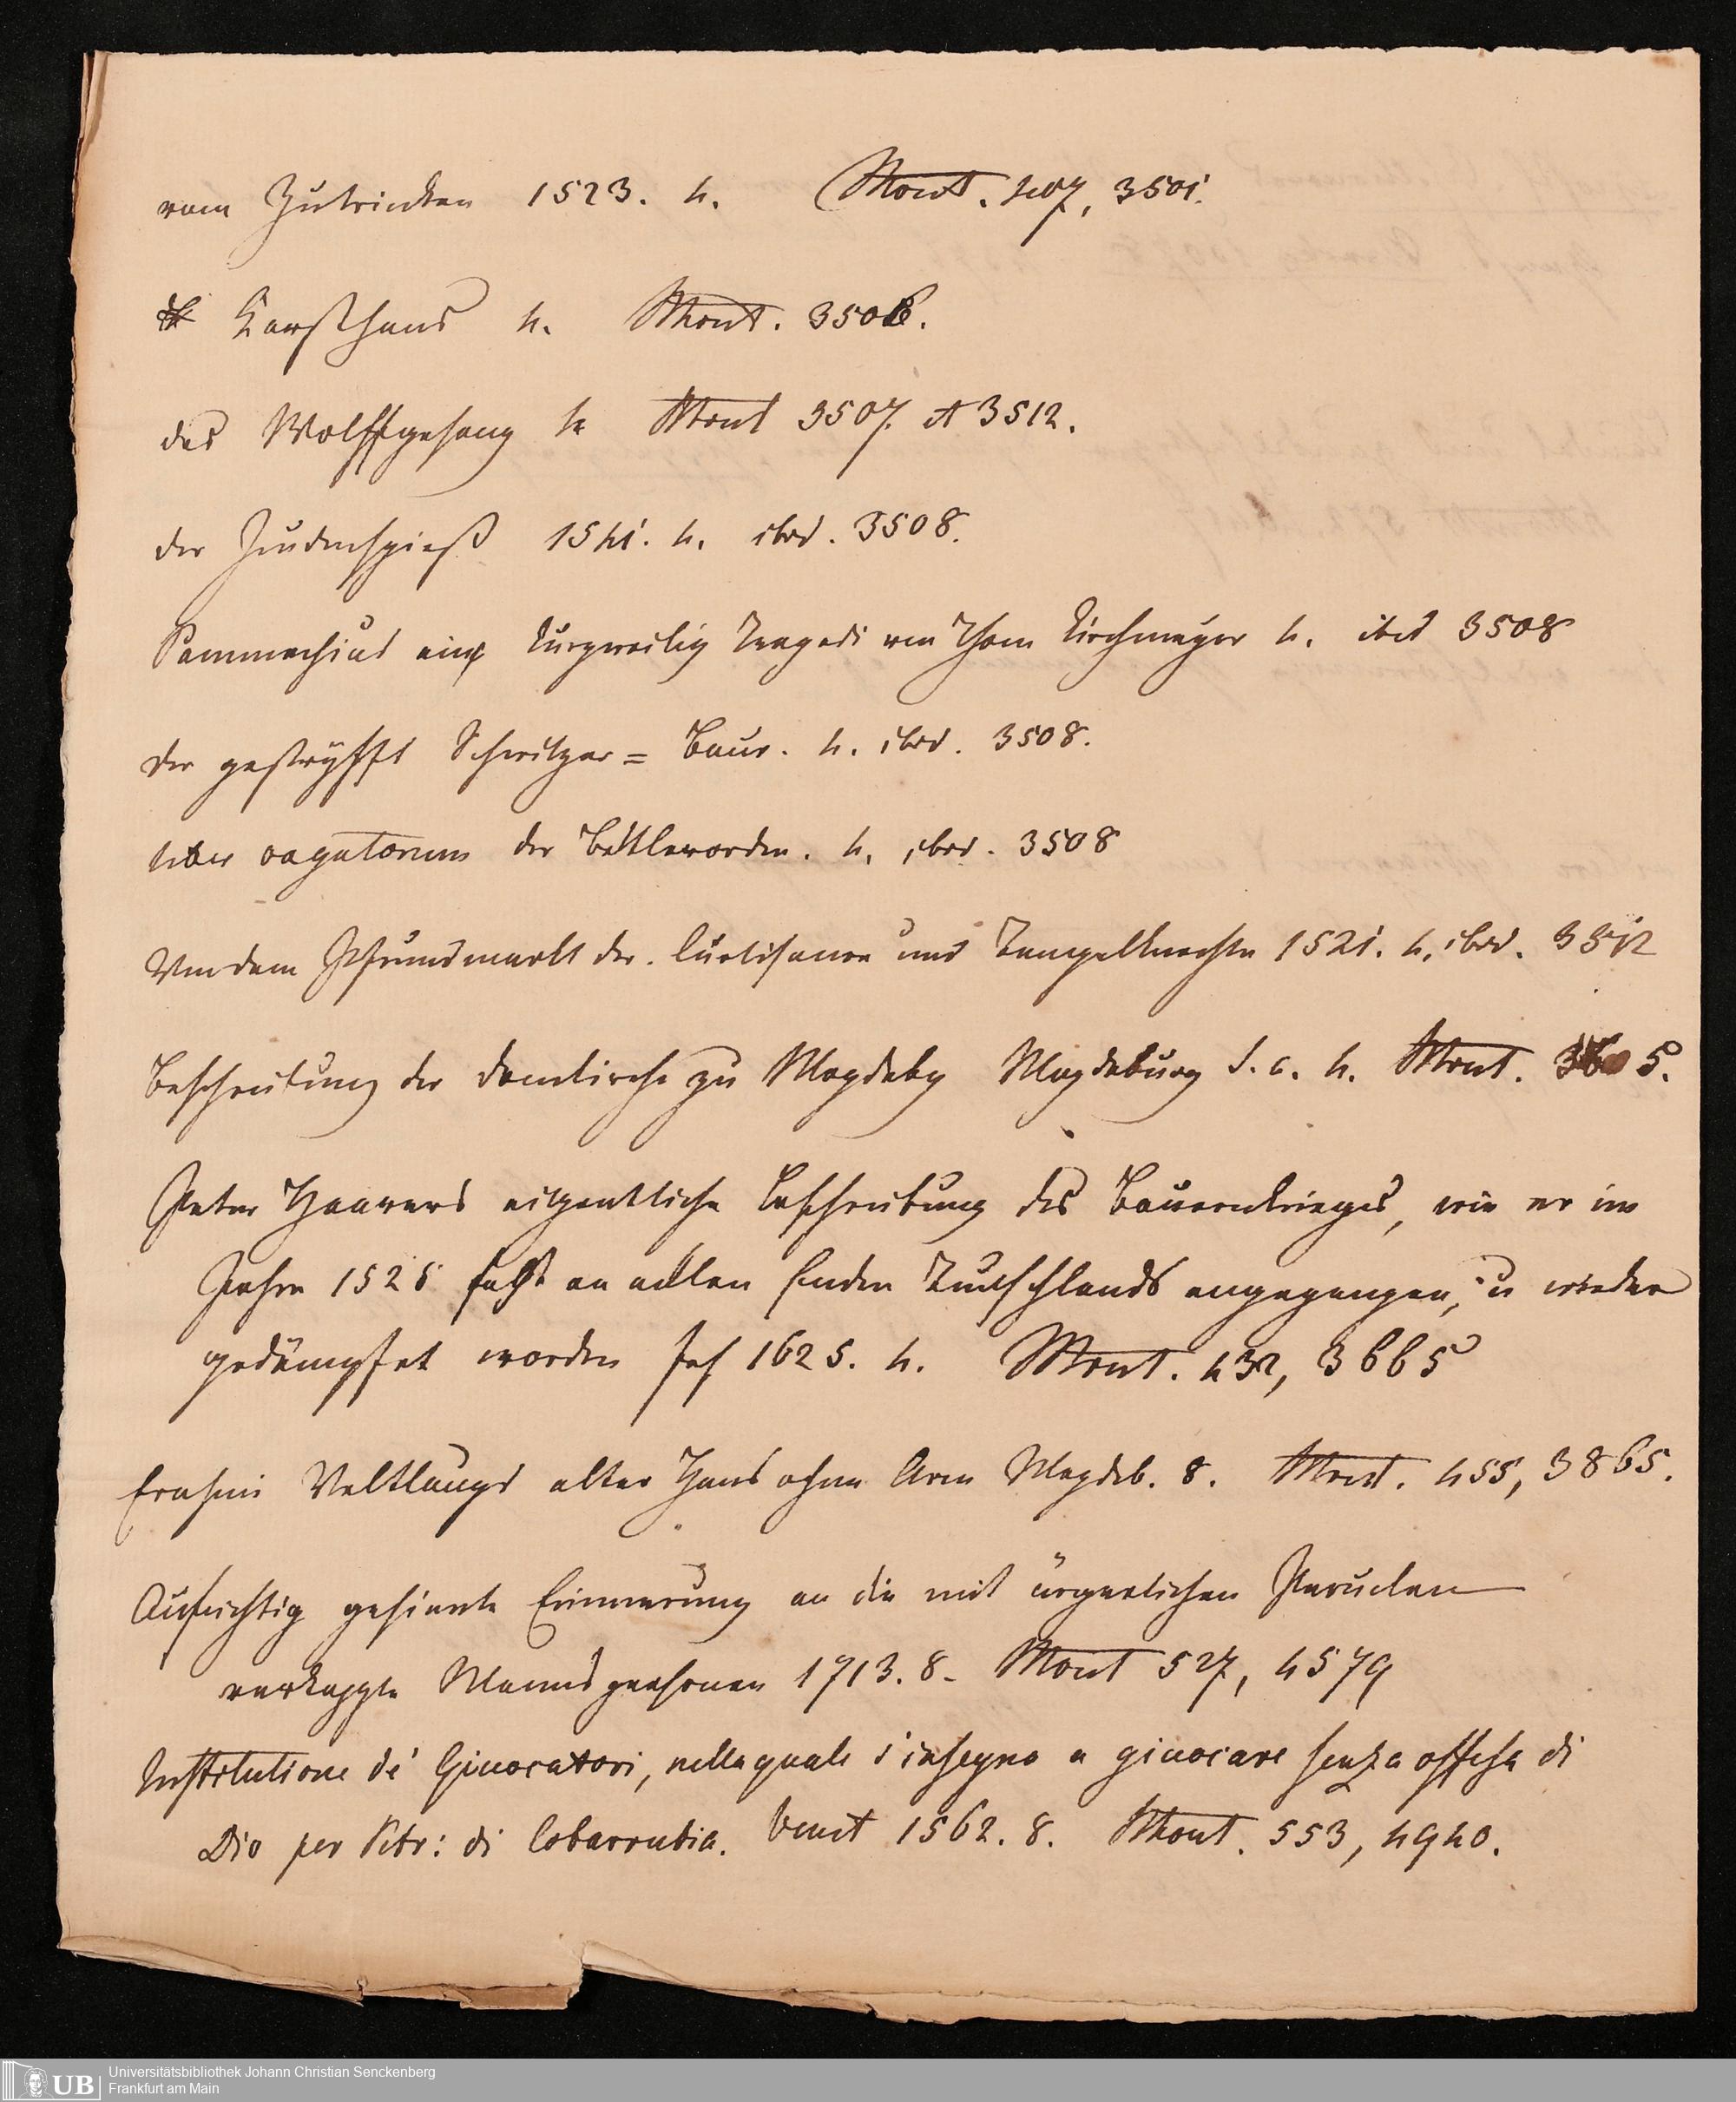 vom Zutrinken 1523. 4. Mont. 407, 3501.
Karsthans 4. Mont. 3506.
das Wolffgesang 4 Mont 3507. et 3512.
der Judenspieß 1541. 4. ibid. 3508.
Pammachius eine kurzweilig Tragedi von Thom Kirchmeyer 4. ibid 3508
der gestryfft Schwitzer = Baur. 4. ibid. 3508.
liber vagatorum der Bettlerorden. 4. ibid. 3508
Von dem Pfrundmarkt der. Curtisanen und Tempelknechte 1521. 4. ibid. 3512
Beschreibung der Domkirche zu Magdebg Magdeburg s. a. 4. Mont. 5.
Peter Haarers eigentliche Beschreibung des Bauernkrieges, wie er im
Jahre 1525 fast an allen Enden Teutschlands angegangen, u wieder
gedämpfet worden Frf 1625. 4. Mont. 432, 3665
Erasmi Veltlangs alter Hans ohne Arm Magdeb. 8. Mont. 455, 3865.
Aufrichtig gesinnte Erinnerung an die mit ärgerlichen Perucken
verkappte Mannspersonen 1713. 8. Mont 527, 4579
Institutione de' Giuocatori, nella quale s'insegna a giuocare senza offesa di
Dio per Petr: di Cobarrubia. Venet 1562. 8. Mont. 553, 4940.
Universitätsbibliothek Johann Christian Senckenberg
UB Frankfurt am Main